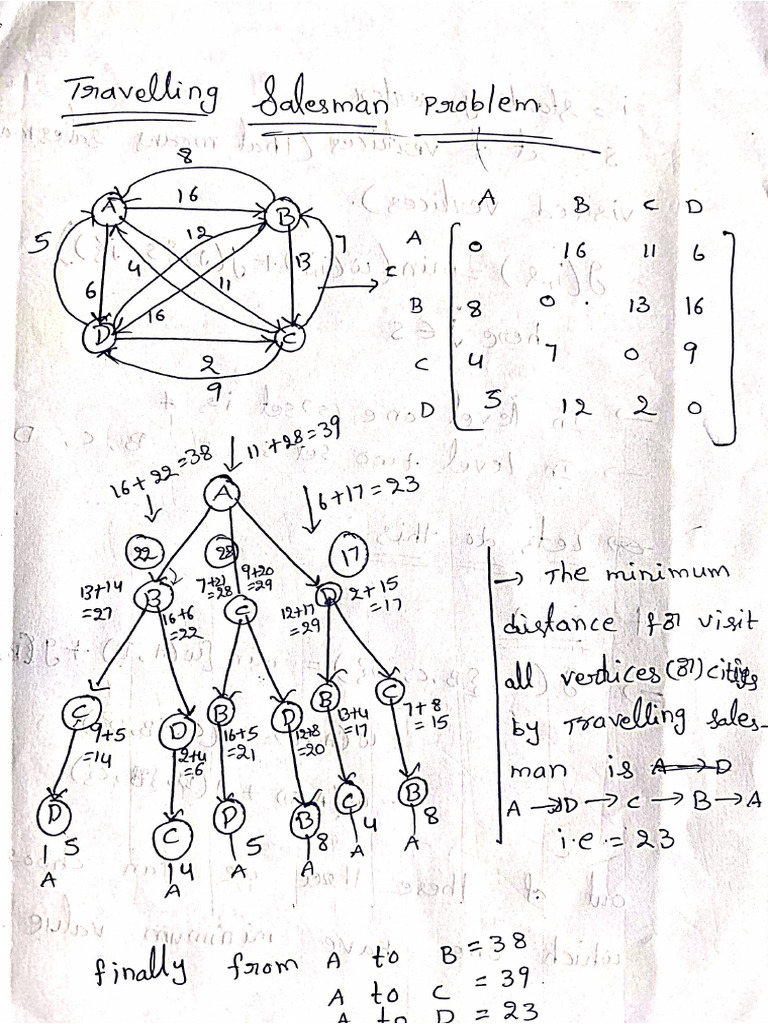 Travelling Salesman Problem
8
16
A
B
5
12
7
4
13
6
11
16
D
C
2
9
A B C D
A 0 16 11 6
B 8 0 13 16
C 4 7 0 9
D 5 12 2 0
16+22=38
11+28=39
6+17=23
A
22
28
17
13+14
=27
B
16+6
=22
7+21
=28
9+20
=29
C
12+17
=29
D
2+15
=17
C
9+5
=14
D
2+4
=6
B
16+5
=21
D
12+8
=20
B
13+4
=17
C
7+8
=15
D
5
A
C
4
A
D
5
A
B
8
A
C
4
A
B
8
A
→ The minimum
distance for visit
all vertices (or) cities
by Travelling sales-
man is A→D
A→D→C→B→A
i.e = 23
finally from A to B = 38
A to C = 39
A to D = 23